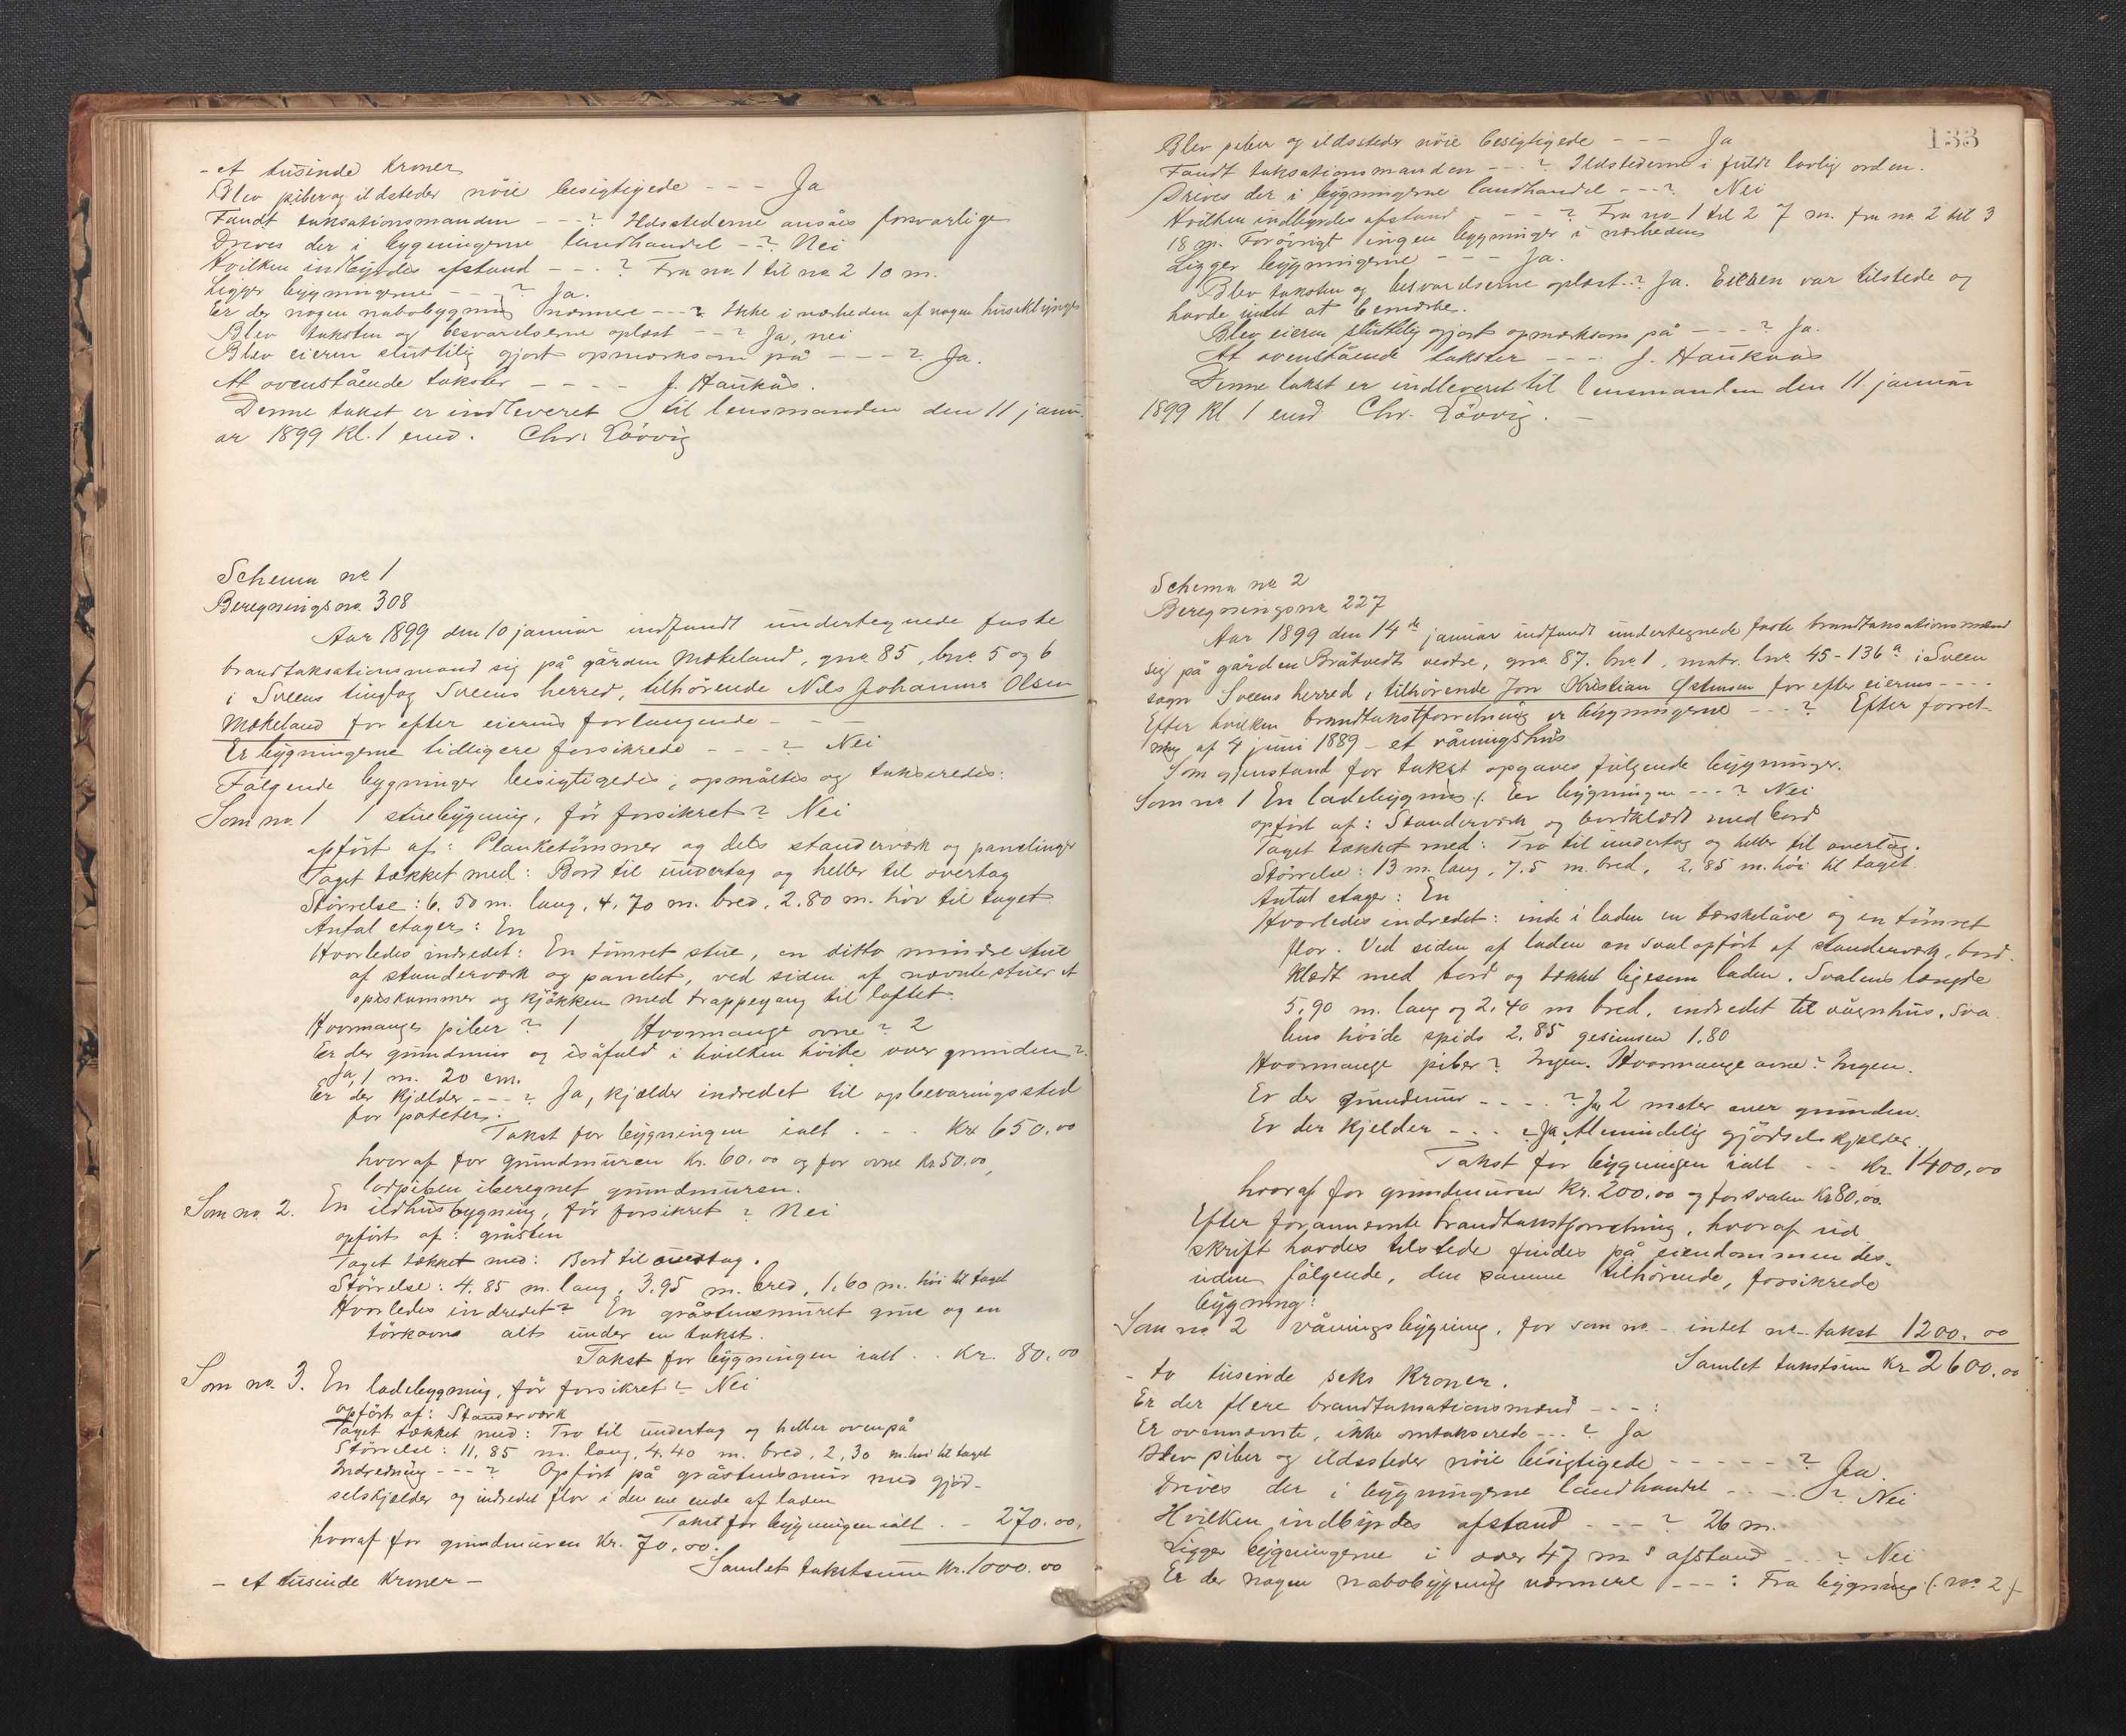 - et tusinde kroner
Blev piber og ildsteder nöie besigtigede - - - Ja
Fandt taksationsmanden - - -? Ildstederne ansåes forsvarlige
Drives der i bygningerne landhandel - -? Nei
Hvilken indbyrdes afstand - - -? Fra no. 1 til no. 2 10 m.
Ligger bygningerne - - -? Ja.
Er der nogen nabobygning nærmere - - -? Ikke i nærheden af nogen husklynge
Blev taksten og besvarelserne oplæst - -? Ja, nei
Blev eieren sluttelig gjort opmærksom på - - - -? Ja.
At ovenstående takster - - - - J. Haukås.
Denne takst er indleveret til lensmanden den 11 janu-
ar 1899 kl. 1 emd. Chr. Lövvig
Schema no 1
Beregningsno. 308
Aar 1899 den 10 januar indfandt undertegnede faste
brandtaksationsmand sig på gården Mækeland, gno. 85, bno. 5 og 6
i Sveens tinglag Sveens herred, tilhörende Nils Johannes Olsen
Mækeland for efter eierens forlangende - - -
Er bygningerne tidligere forsikrede - - -? Nei
Fölgende bygninger besigtigedes, opmåltes og takseredes:
Som no. 1 1 stuebygning, för forsikret? Nei
opfört af: Planketömmer og dels standerværk og panelinger
Taget tækket med: Bord til undertag og heller til overtag
Störrelse: 6,50 m. lang, 4,70 m. bred, 2.80 m. höi til taget
Antal etager: En
Hvorledes indredet: En tömret stue, en ditto mindre stue
af standerværk og panelet, ved siden af nævnte stuer et
spiskammer og kjökken med trappegang til loftet.
Hvormange piber? 1 Hvormange ovne? 2
Er der grundmur og isåfald i hvilken höide over grunden?
Ja, 1 m. 20 cm.
Er der kjælder - - -? Ja, kjælder indredet til opbevaringssted
for poteter.
Takst for bygningen ialt - - - Kr 650.00
hvoraf for grundmuren Kr. 60.00 og for ovne Kr 50.00,
iberegnet grundmuren.
Som no. 2. En ildhusbygning, för forsikret? Nei
opfört af: gråsten
Taget tækket med: Bord til overtag.
Störrelse: 4.85 m. lang, 3.95 m. bred, 1.60 m. höi til taget
Hvorledes indredet? En gråstensmuret grue og en
törkovn alt under en takst.
Takst for bygningen ialt . . Kr. 80.00
Som no. 3. En ladebygning, för forsikret? Nei
opfört af: Standerværk
Taget tækket med: Tro til undertag og heller ovenpå
Störrelse: 11,85 m. lang, 4.40 m. bred, 2,30 m. höi til taget
Indredning - - -? Opfört på gråstensmur med gjöd-
selskjælder og indredet flor i den ene ende af laden
Takst for bygningen ialt . - 270.00.
hvoraf for grundmuren Kr. 70.00.
Samlet takstsum Kr. 1000.00
- et tusinde kroner -
133
Blev piber og ildsteder nöie besigtigede - - - Ja
Fandt taksationsmanden - - -? Ildstederne i fuldt lovlig orden.
Drives der i bygningerne landhandel - - -? Nei
Hvilken indbyrdes afstand - - -? Fra no. 1 til 2 7 m. fra no. 2 til 3
18 m. Forövrigt ingen bygninger i nærheden
Ligger bygningerne - - - Ja.
Blev taksten og besvarelserne oplæst -? Ja. Eieren var tilstede og
havde intet at bemærke.
Blev eieren sluttelig gjort opmærksom på - - -? Ja.
At ovenstående takster - - - J. Haukaas
Denne takst er indleveret til lensmanden den 11. januar
1899 Kl 1 emd Chr. Lövvig. -
Schema no 2
Beregningsno 227
Aar 1899 den 14de januar indfandt undertegnede faste brandtaksationsmand
sig på gården Bråtvedt vestre, gno. 87. bno 1, matr. lno. 45-136a i Sveen
sogn Sveens herred, tilhörende Jon Kristian Östensen for efter eierens - - - -
Efter hvilken brandtakstforretning er bygningerne - - -? Efter forret-
ning af 4 juni 1889 - et våningshus
Som gjenstand for takst opgaves fölgende bygninger.
Som no 1 En ladebygning. Er bygningen - - -? Nei
opfört af: Standerværk og bordklædt med bord
Taget tækket med: Tro til undertag og heller til overtag.
Störrelse: 13 m. lang, 7.5 m. bred, 2,85 m. höi til taget
Antal etager: En
Hvorledes indredet: inde i laden en tærskelåve og en tömret
flor. Ved siden af laden en sval opfört af standerværk, bord-
klædt med bord og tækket ligesom laden. Svalens længde
5,90 m. lang og 2,40 m bred, indredet til vågnhus. Sva-
lens höide spids 2,85 gesimsen 1.80
Hvormange piber? Ingen. Hvormange ovne? Ingen.
Er der grundmur - - - -? Ja, 2 meter over grunden.
Er der kjelder - - - -? Ja, Almindelig gjödselskjelder.
Takst for bygningen ialt - - Kr. 1400.00
hvoraf for grundmuren Kr. 200.00 og for svalen Kr 80.00
Efter forannævnte brandtakstforretning, hvoraf ud-
skrift havdes tilstede findes på eiendommen des-
uden fölgende, den samme tilhörende, forsikrede
bygning:
Som no 2 våningsbygning, för som no - intet no - takst 1200.00
Samlet takstsum Kr 2600.00
- to tusinde seks kroner.
Er der flere brandtaksationsmænd - - - :
Er ovennævnte, ikke omtakserede - - -? Ja
Blev piber og ildsteder nöie besigtigede - - - - -? Ja.
Drives der i bygningerne landhandel - - - -? Nei
Hvilken indbyrdes afstand - - -? 26 m.
Ligger bygningerne i over 47 m's afstand - - -? Nei
Er der nogen nabobygning nærmere - - - : Fra bygning (no. 2)